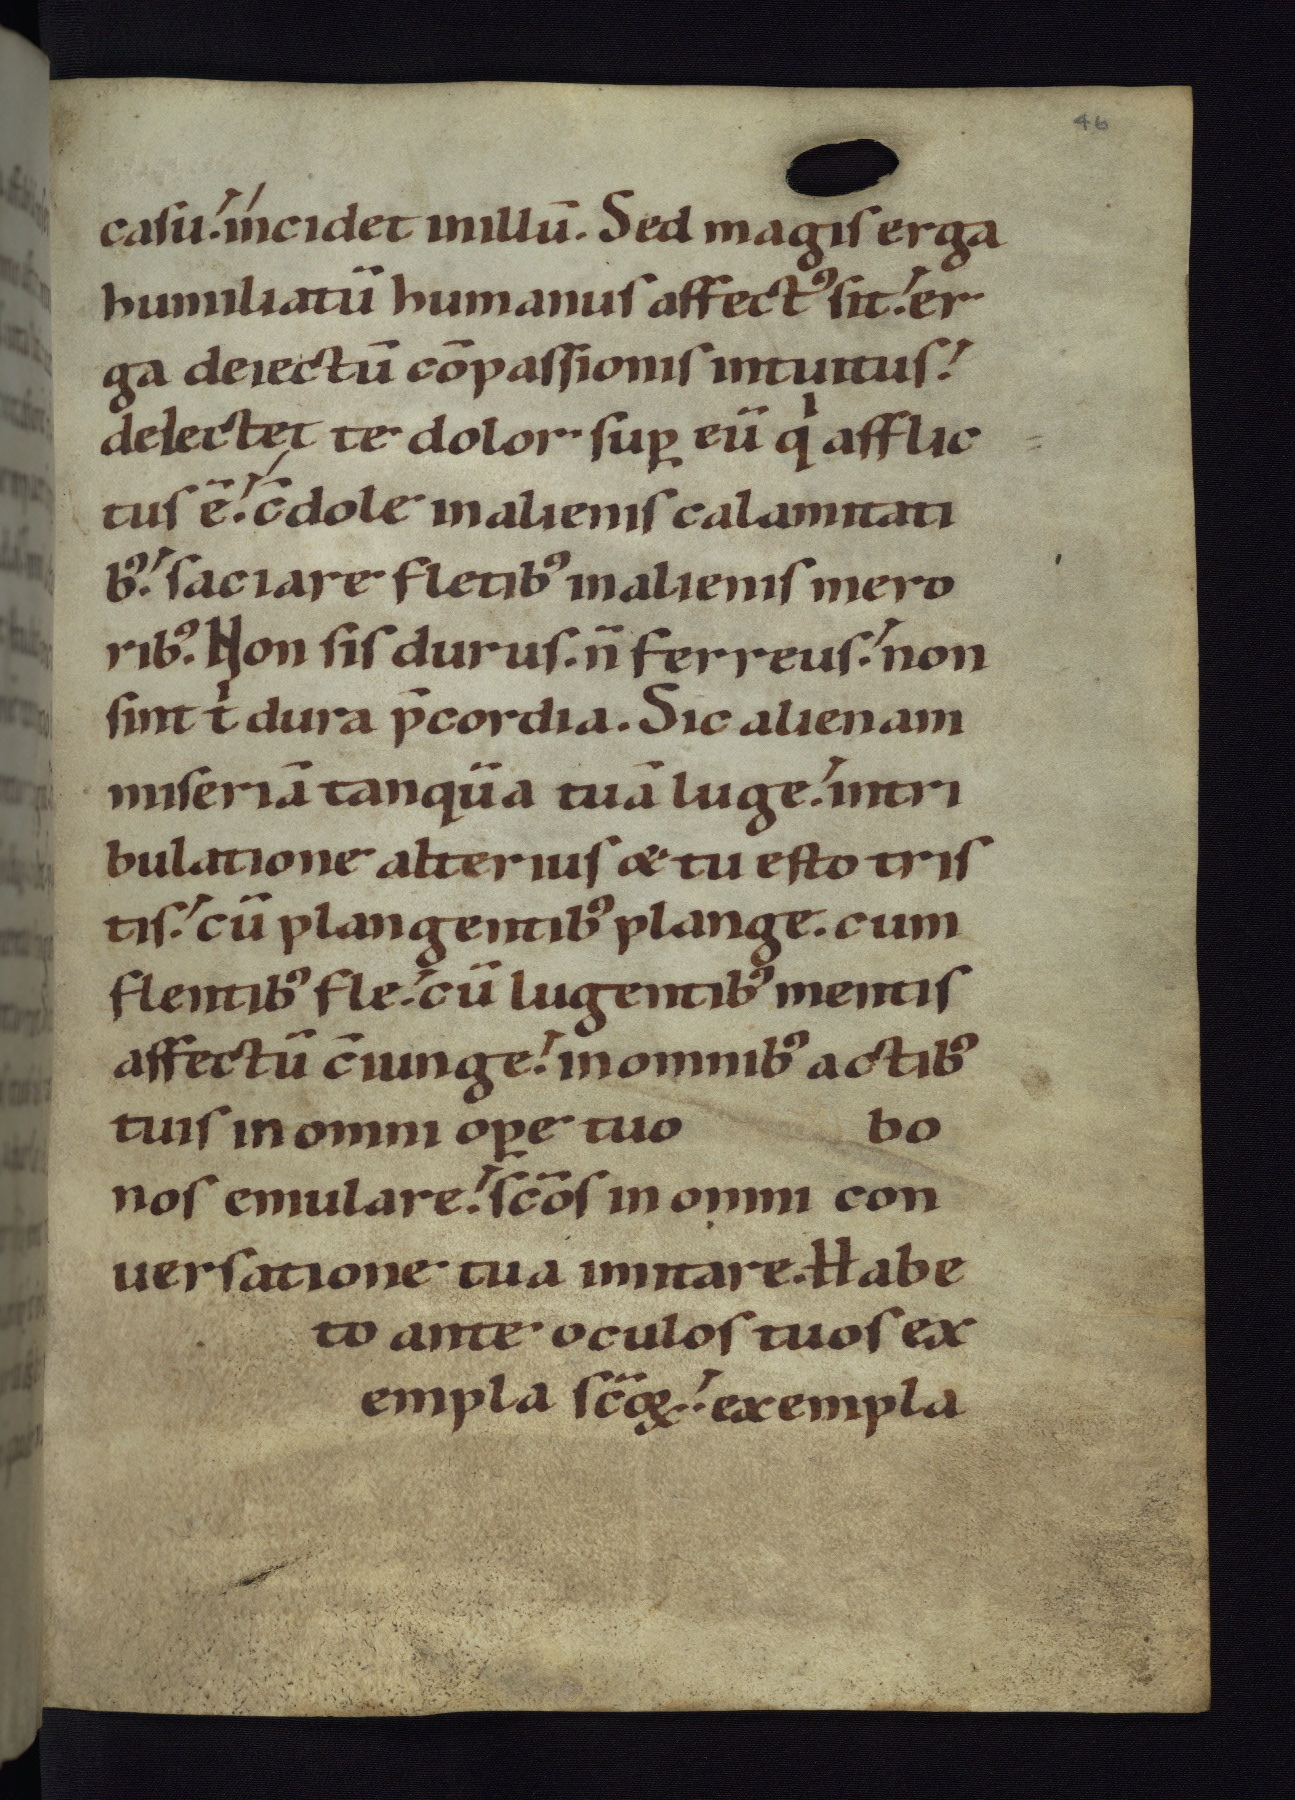 46
casū. incidet in illū. Sed magis erga
humiliatū humanus affect⁹ sit. er
ga deiectū cōpassionis intuitus.
delectet te dolor suꝑ eū qi afflic
tus ē. c̄dole in alienis calamitati
b⁹. saciare fletib⁹ in alienis mero
rib⁹. Non sis durus. n̄ ferreus. non
sint ti dura p̄cordia. Sic alienam
miseriā tanqūa tuā luge. in tri
bulatione alterius & tu esto tris
tis. cū plangentib⁹ plange. cum
flentib⁹ fle. cū lugentib⁹ mentis
affectū c̄iunge. in omnib⁹ actib⁹
tuis in omni oꝑe tuo bo
nos emulare. sc̄os in omni con
uersatione tua imitare. Habe
to ante oculos tuos ex
empla sc̄oꝝ. exempla